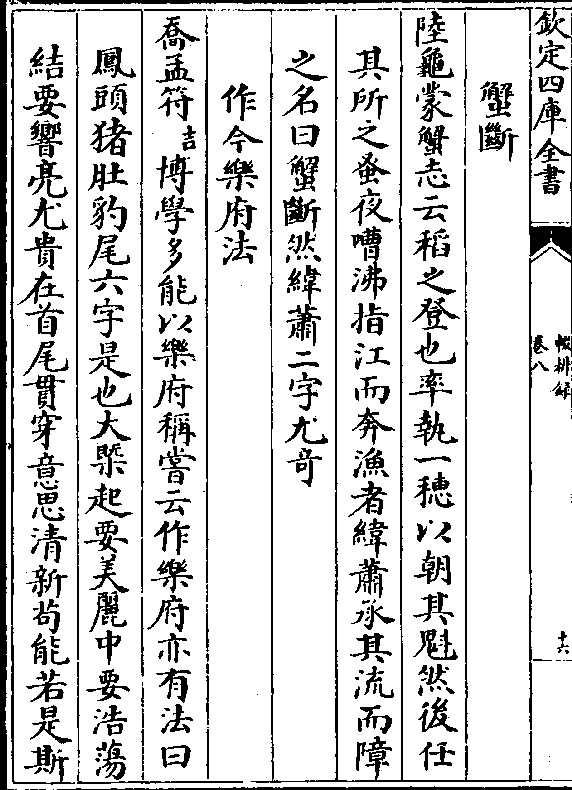 欽定四庫全書
輟耕錄
卷八
十六
蟹斷
陸龜蒙蟹志云稻之登也率執一穗以朝其魁然後任
其所之蚤夜𡄸沸指江而奔漁者緯蕭承其流而障
之名曰蟹斷然緯蕭二字尤竒
作今樂府法
喬孟符吉博學多能以樂府稱嘗云作樂府亦有法曰
鳳頭猪肚豹尾六字是也大槩起要美麗中要浩蕩
結要響亮尤貴在首尾貫穿意思清新茍能若是斯